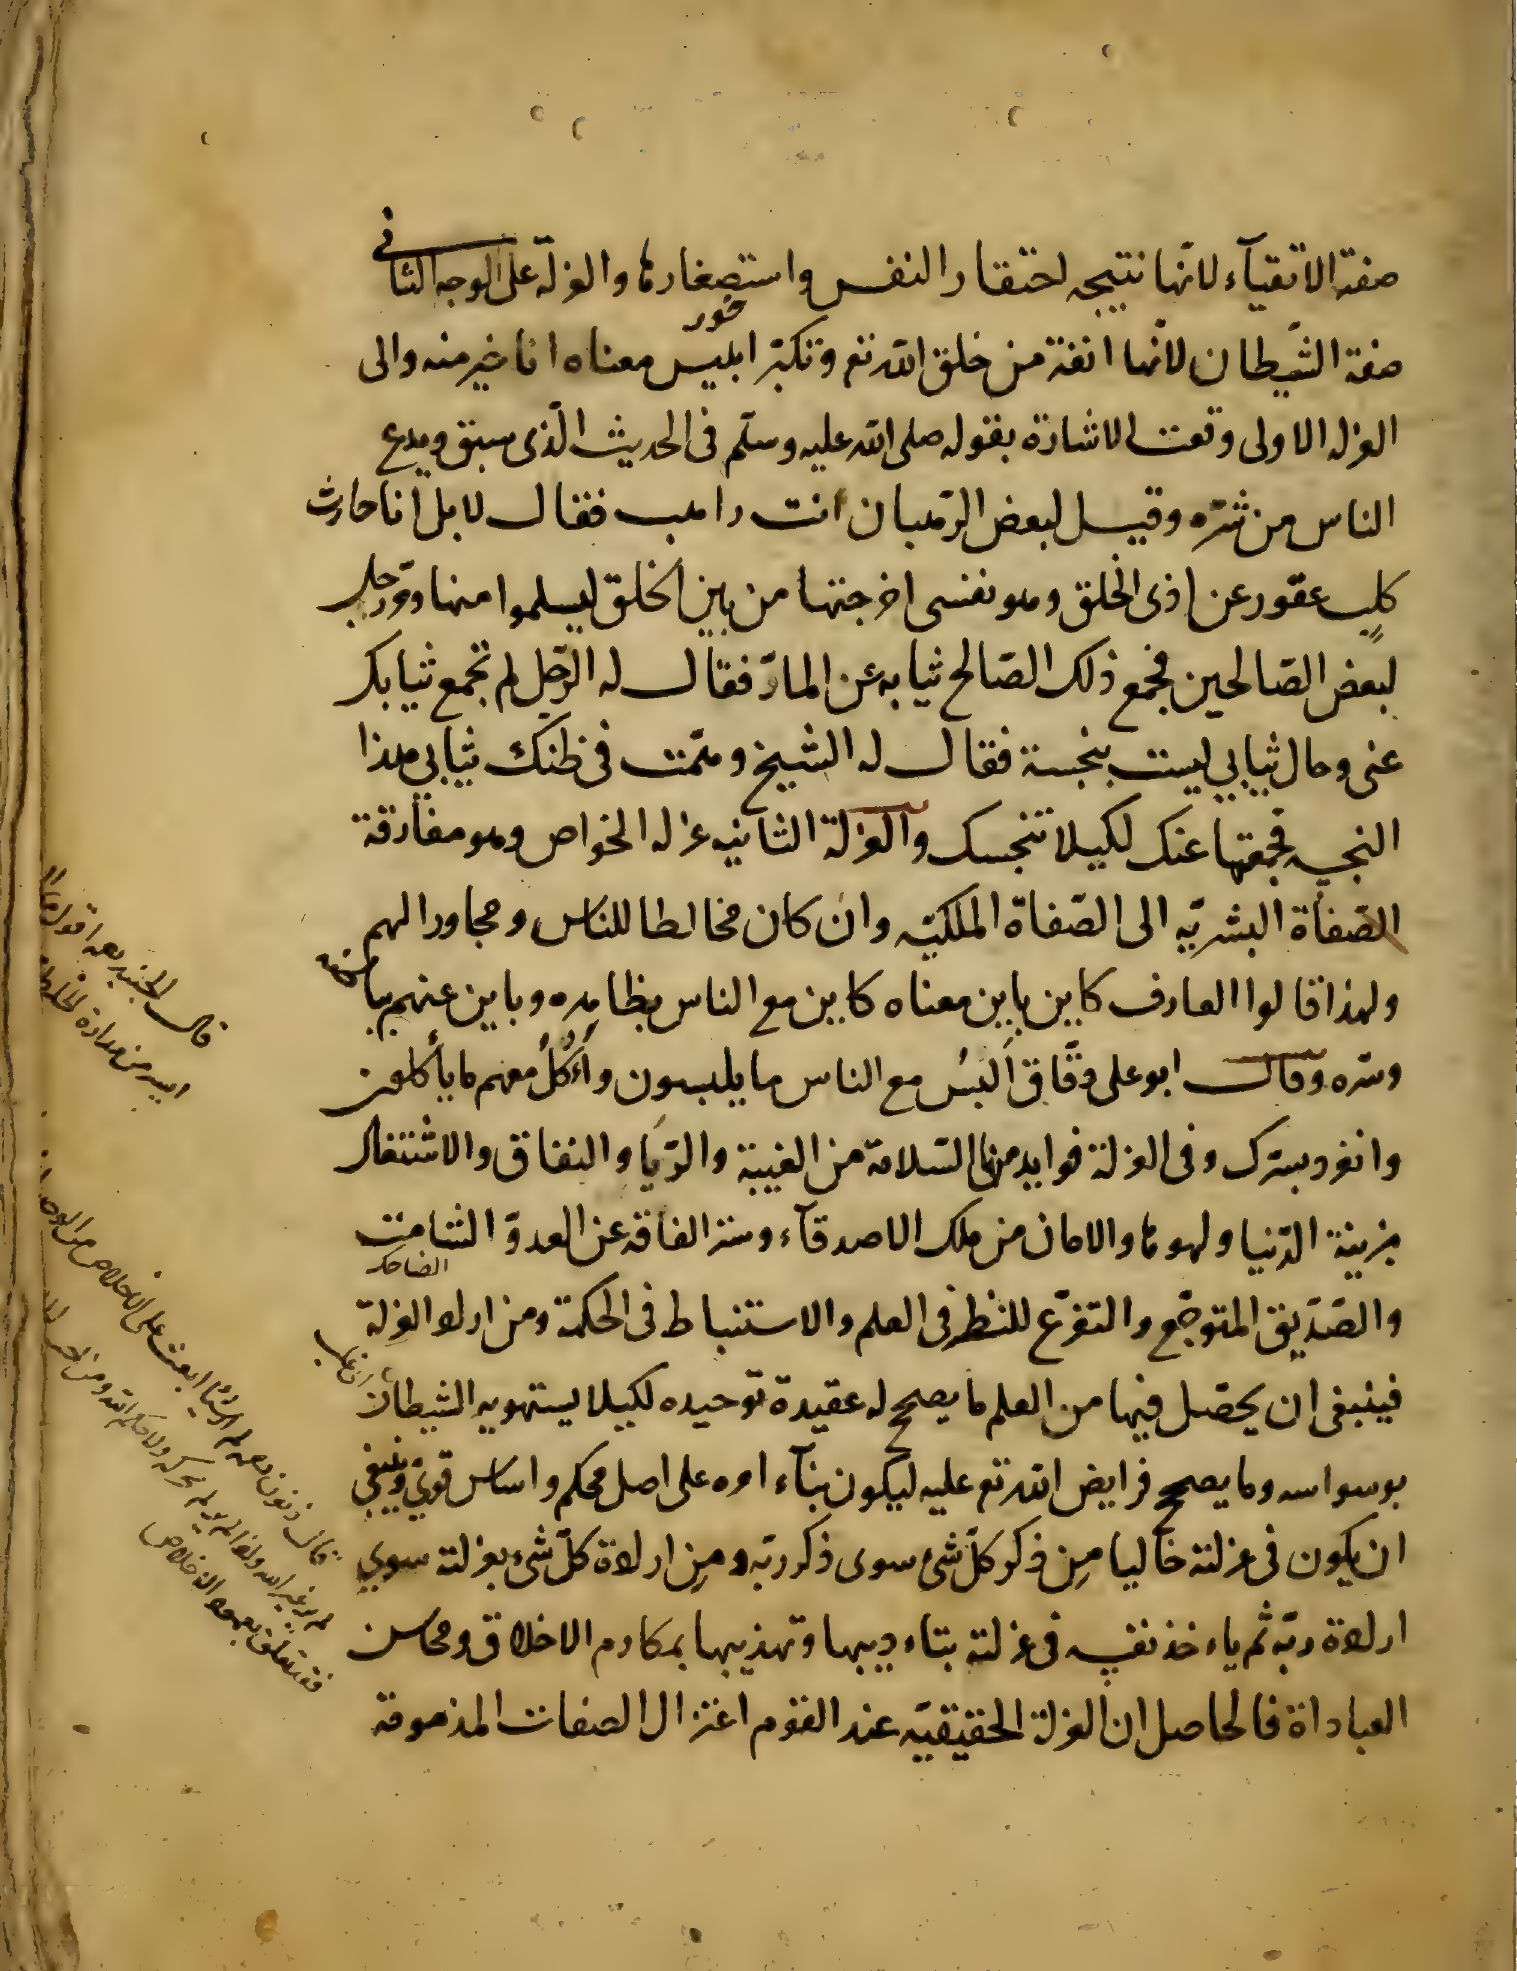 صفة الاتقيآء لانّها نتيجه احتقار النفس واستصغارها والعزلة على الوجه الثانى
صفة الشّيطان لانّها انفة من خلق الله تع وتكبّر ابليس معناه انا خير منه والى
العزله الاولى وقعت الاشارة بقوله صلى الله عليه وسلّم فى الحديث الّذى سبق ويدع
الناس من شرّه وقيل لبعض الرّهبان انت راهب فقال لا بل انا حارث
كلب عقور عن اذى الخلق وهو نفسى اخرجتها من بين الخلق ليسلموا منها ومرّ رجل
لبعض الصّالحين فجمع ذلك الصّالح ثيابه عن المارّ فقال له الرّجل لم تجمع ثيابك
عنى وحال ثيابي ليست بنجسة فقال له الشيخ وهّمت فى ظنك ثيابي هذا
النجس فجمعتها عنك لكيلا تنجسك والعزلة الثانيه عزله الخواص وهو مفارقة
الصّفاة البشريّه الى الصّفاة الملكيّه وان كان مخالطا للناس ومجاورا لهم
ولهذا قالوا العارف كاين باين معناه كاين مع الناس بظاهره وباين عنهم بباطنه
وسّره وقال ابو على دقّاق اَلبَسُ مع الناس ما يلبسون وآءكُلُ معهم ما يأكلون
وانفرد بسرّك وفى العزلة فوايد منها السّلامة من الغيبة والرّيا والنفاق والاشتغال
بزينة الدّنيا ولهوها والامان من ملك الاصدقآء وستر الفاقه عن العدوّ الشامت
الضاحك
والصّدّيق المتوجّع والتفرّع للنظر فى العلم والاستنباط فى الحكمة ومن اراد العزلة
فينبغى ان يحصّل فيها من العلم ما يصحح له عقيدة توحيده لكيلا يستهويه الشيطان
بوسواسه وما يصحح فرايض الله تع عليه ليكون بنآء امره على اصل محكم واساس قويّ وينبغي
ان يكون فى عزلته خاليا من ذكر كلّ شئ سوى ذكر ربّه ومن ارادة كلّ شئ بعزلته سوي
ارادة ربّه ثم ياءخذ نفسه فى عزلته بتاءديبها وتهذيبها بمكارم الاخلاق ومحاسن
العباداة فالحاصل ان العزلة الحقيقيّه عند القوم اعتزال الصفات المذمومة
قال الجنيد رحمه الله
ايسر من مداراة الخلطة